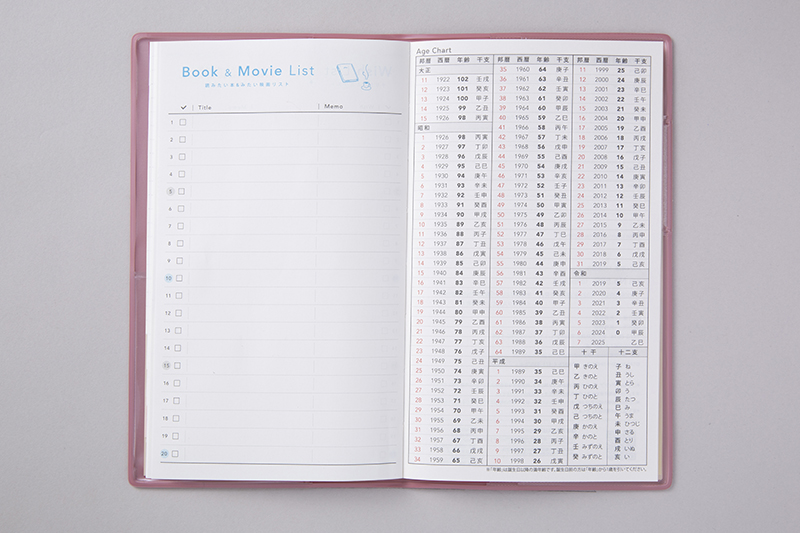 Book & Movie List
読みたい本&みたい映画リスト
✓ Title Memo
1
2
3
4
5
6
7
8
9
10
11
12
13
14
15
16
17
18
19
20
Age Chart
邦暦 西暦 年齢 干支
大正
11 1922 102 壬戌
12 1923 101 癸亥
13 1924 100 甲子
14 1925 99 乙丑
15 1926 98 丙寅
昭和
1 1926 98 丙寅
2 1927 97 丁卯
3 1928 96 戊辰
4 1929 95 己巳
5 1930 94 庚午
6 1931 93 辛未
7 1932 92 壬申
8 1933 91 癸酉
9 1934 90 甲戌
10 1935 89 乙亥
11 1936 88 丙子
12 1937 87 丁丑
13 1938 86 戊寅
14 1939 85 己卯
15 1940 84 庚辰
16 1941 83 辛巳
17 1942 82 壬午
18 1943 81 癸未
19 1944 80 甲申
20 1945 79 乙酉
21 1946 78 丙戌
22 1947 77 丁亥
23 1948 76 戊子
24 1949 75 己丑
25 1950 74 庚寅
26 1951 73 辛卯
27 1952 72 壬辰
28 1953 71 癸巳
29 1954 70 甲午
30 1955 69 乙未
31 1956 68 丙申
32 1957 67 丁酉
33 1958 66 戊戌
34 1959 65 己亥
邦暦 西暦 年齢 干支
35 1960 64 庚子
36 1961 63 辛丑
37 1962 62 壬寅
38 1963 61 癸卯
39 1964 60 甲辰
40 1965 59 乙巳
41 1966 58 丙午
42 1967 57 丁未
43 1968 56 戊申
44 1969 55 己酉
45 1970 54 庚戌
46 1971 53 辛亥
47 1972 52 壬子
48 1973 51 癸丑
49 1974 50 甲寅
50 1975 49 乙卯
51 1976 48 丙辰
52 1977 47 丁巳
53 1978 46 戊午
54 1979 45 己未
55 1980 44 庚申
56 1981 43 辛酉
57 1982 42 壬戌
58 1983 41 癸亥
59 1984 40 甲子
60 1985 39 乙丑
61 1986 38 丙寅
62 1987 37 丁卯
63 1988 36 戊辰
64 1989 35 己巳
平成
1 1989 35 己巳
2 1990 34 庚午
3 1991 33 辛未
4 1992 32 壬申
5 1993 31 癸酉
6 1994 30 甲戌
7 1995 29 乙亥
8 1996 28 丙子
9 1997 27 丁丑
10 1998 26 戊寅
邦暦 西暦 年齢 干支
11 1999 25 己卯
12 2000 24 庚辰
13 2001 23 辛巳
14 2002 22 壬午
15 2003 21 癸未
16 2004 20 甲申
17 2005 19 乙酉
18 2006 18 丙戌
19 2007 17 丁亥
20 2008 16 戊子
21 2009 15 己丑
22 2010 14 庚寅
23 2011 13 辛卯
24 2012 12 壬辰
25 2013 11 癸巳
26 2014 10 甲午
27 2015 9 乙未
28 2016 8 丙申
29 2017 7 丁酉
30 2018 6 戊戌
31 2019 5 己亥
令和
1 2019 5 己亥
2 2020 4 庚子
3 2021 3 辛丑
4 2022 2 壬寅
5 2023 1 癸卯
6 2024 0 甲辰
7 2025 乙巳
十干 十二支
甲 きのえ
乙 きのと
丙 ひのえ
丁 ひのと
戊 つちのえ
己 つちのと
庚 かのえ
辛 かのと
壬 みずのえ
癸 みずのと
子 ね
丑 うし
寅 とら
卯 う
辰 たつ
巳 み
午 うま
未 ひつじ
申 さる
酉 とり
戌 いぬ
亥 い
※「年齢」は誕生日以降の満年齢です。誕生日前の方は「年齢」から1歳を引いてください。